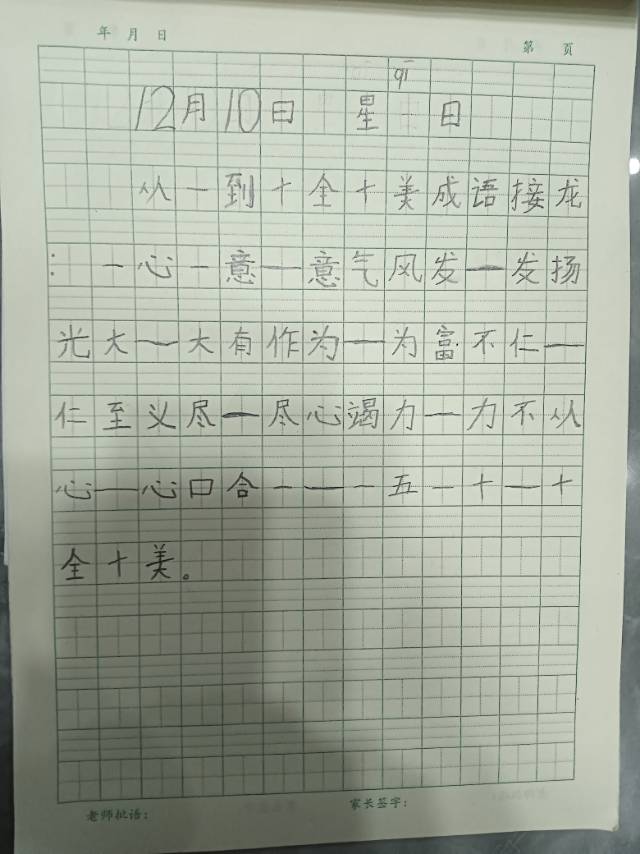 年 月 日 第 页
qī
12月10日 星 日
从一到十全十美成语接龙
：一心一意——意气风发——发扬
光大——大有作为——为富不仁——
仁至义尽——尽心竭力——力不从
心——心口合一——一五一十——十
全十美。
老师批语： 家长签字：